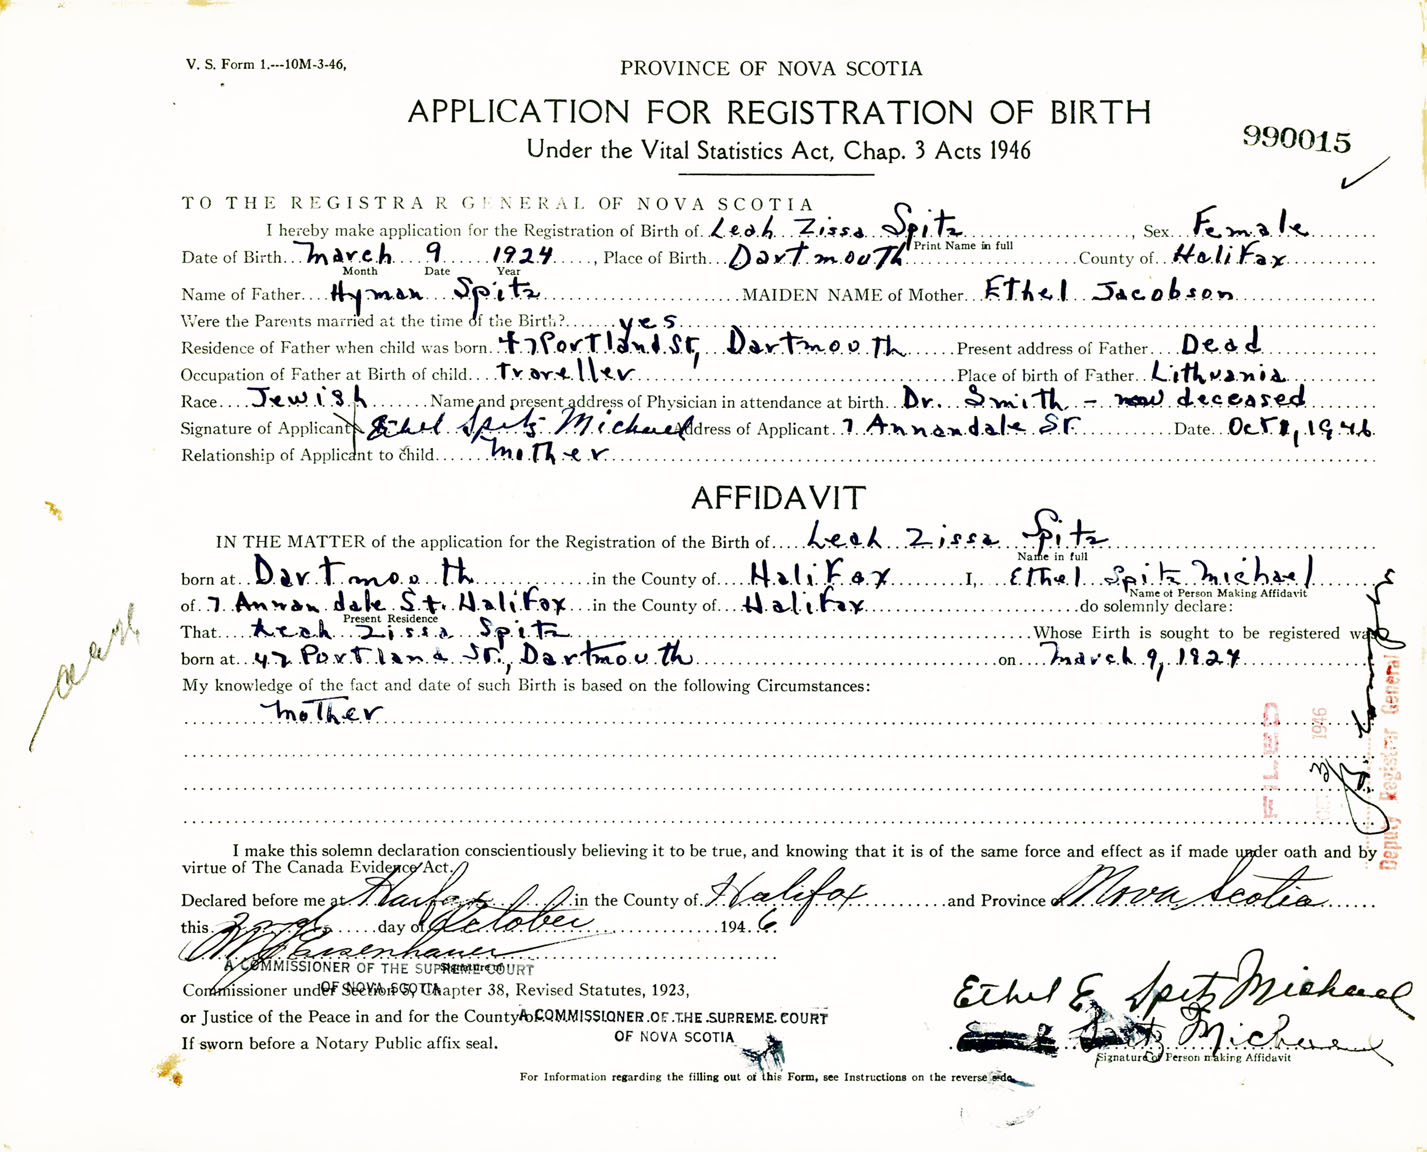 V. S. Form 1.---10M-3-46,
PROVINCE OF NOVA SCOTIA
APPLICATION FOR REGISTRATION OF BIRTH
Under the Vital Statistics Act, Chap. 3 Acts 1946
990015
TO THE REGISTRAR GENERAL OF NOVA SCOTIA
I hereby make application for the Registration of Birth of Leah Zissa Spitz, Sex Female
Print Name in full
Date of Birth March 9 1924, Place of Birth Dartmouth County of Halifax
Month Date Year
Name of Father Hyman Spitz MAIDEN NAME of Mother Ethel Jacobson
Were the Parents married at the time of the Birth? yes
Residence of Father when child was born 47 Portland St, Dartmouth Present address of Father Dead
Occupation of Father at Birth of child traveller Place of birth of Father Lithuania
Race Jewish Name and present address of Physician in attendance at birth Dr. Smith - now deceased
Signature of Applicant Ethel Spitz Michael Address of Applicant 7 Annandale St. Date Oct 2, 1946
Relationship of Applicant to child Mother
AFFIDAVIT
IN THE MATTER of the application for the Registration of the Birth of Leah Zissa Spitz
Name in full
born at Dartmouth in the County of Halifax I, Ethel Spitz Michael
Name of Person Making Affidavit
of 7 Annandale St. Halifax in the County of Halifax do solemnly declare:
Present Residence
That Leah Zissa Spitz Whose Birth is sought to be registered was
born at 47 Portland St., Dartmouth on March 9, 1924
My knowledge of the fact and date of such Birth is based on the following Circumstances:
Mother
FILED
1946
Deputy Registrar General
I make this solemn declaration conscientiously believing it to be true, and knowing that it is of the same force and effect as if made under oath and by
virtue of The Canada Evidence Act.
Declared before me at Halifax in the County of Halifax and Province of Nova Scotia
this 2nd day of October 1946
A COMMISSIONER OF THE SUPREME COURT
OF NOVA SCOTIA
Commissioner under Section 5, Chapter 38, Revised Statutes, 1923,
or Justice of the Peace in and for the County of
A COMMISSIONER OF THE SUPREME COURT
OF NOVA SCOTIA
If sworn before a Notary Public affix seal.
Ethel E Spitz Michael
Spitz Michael
Signature of Person making Affidavit
For Information regarding the filling out of this Form, see Instructions on the reverse side